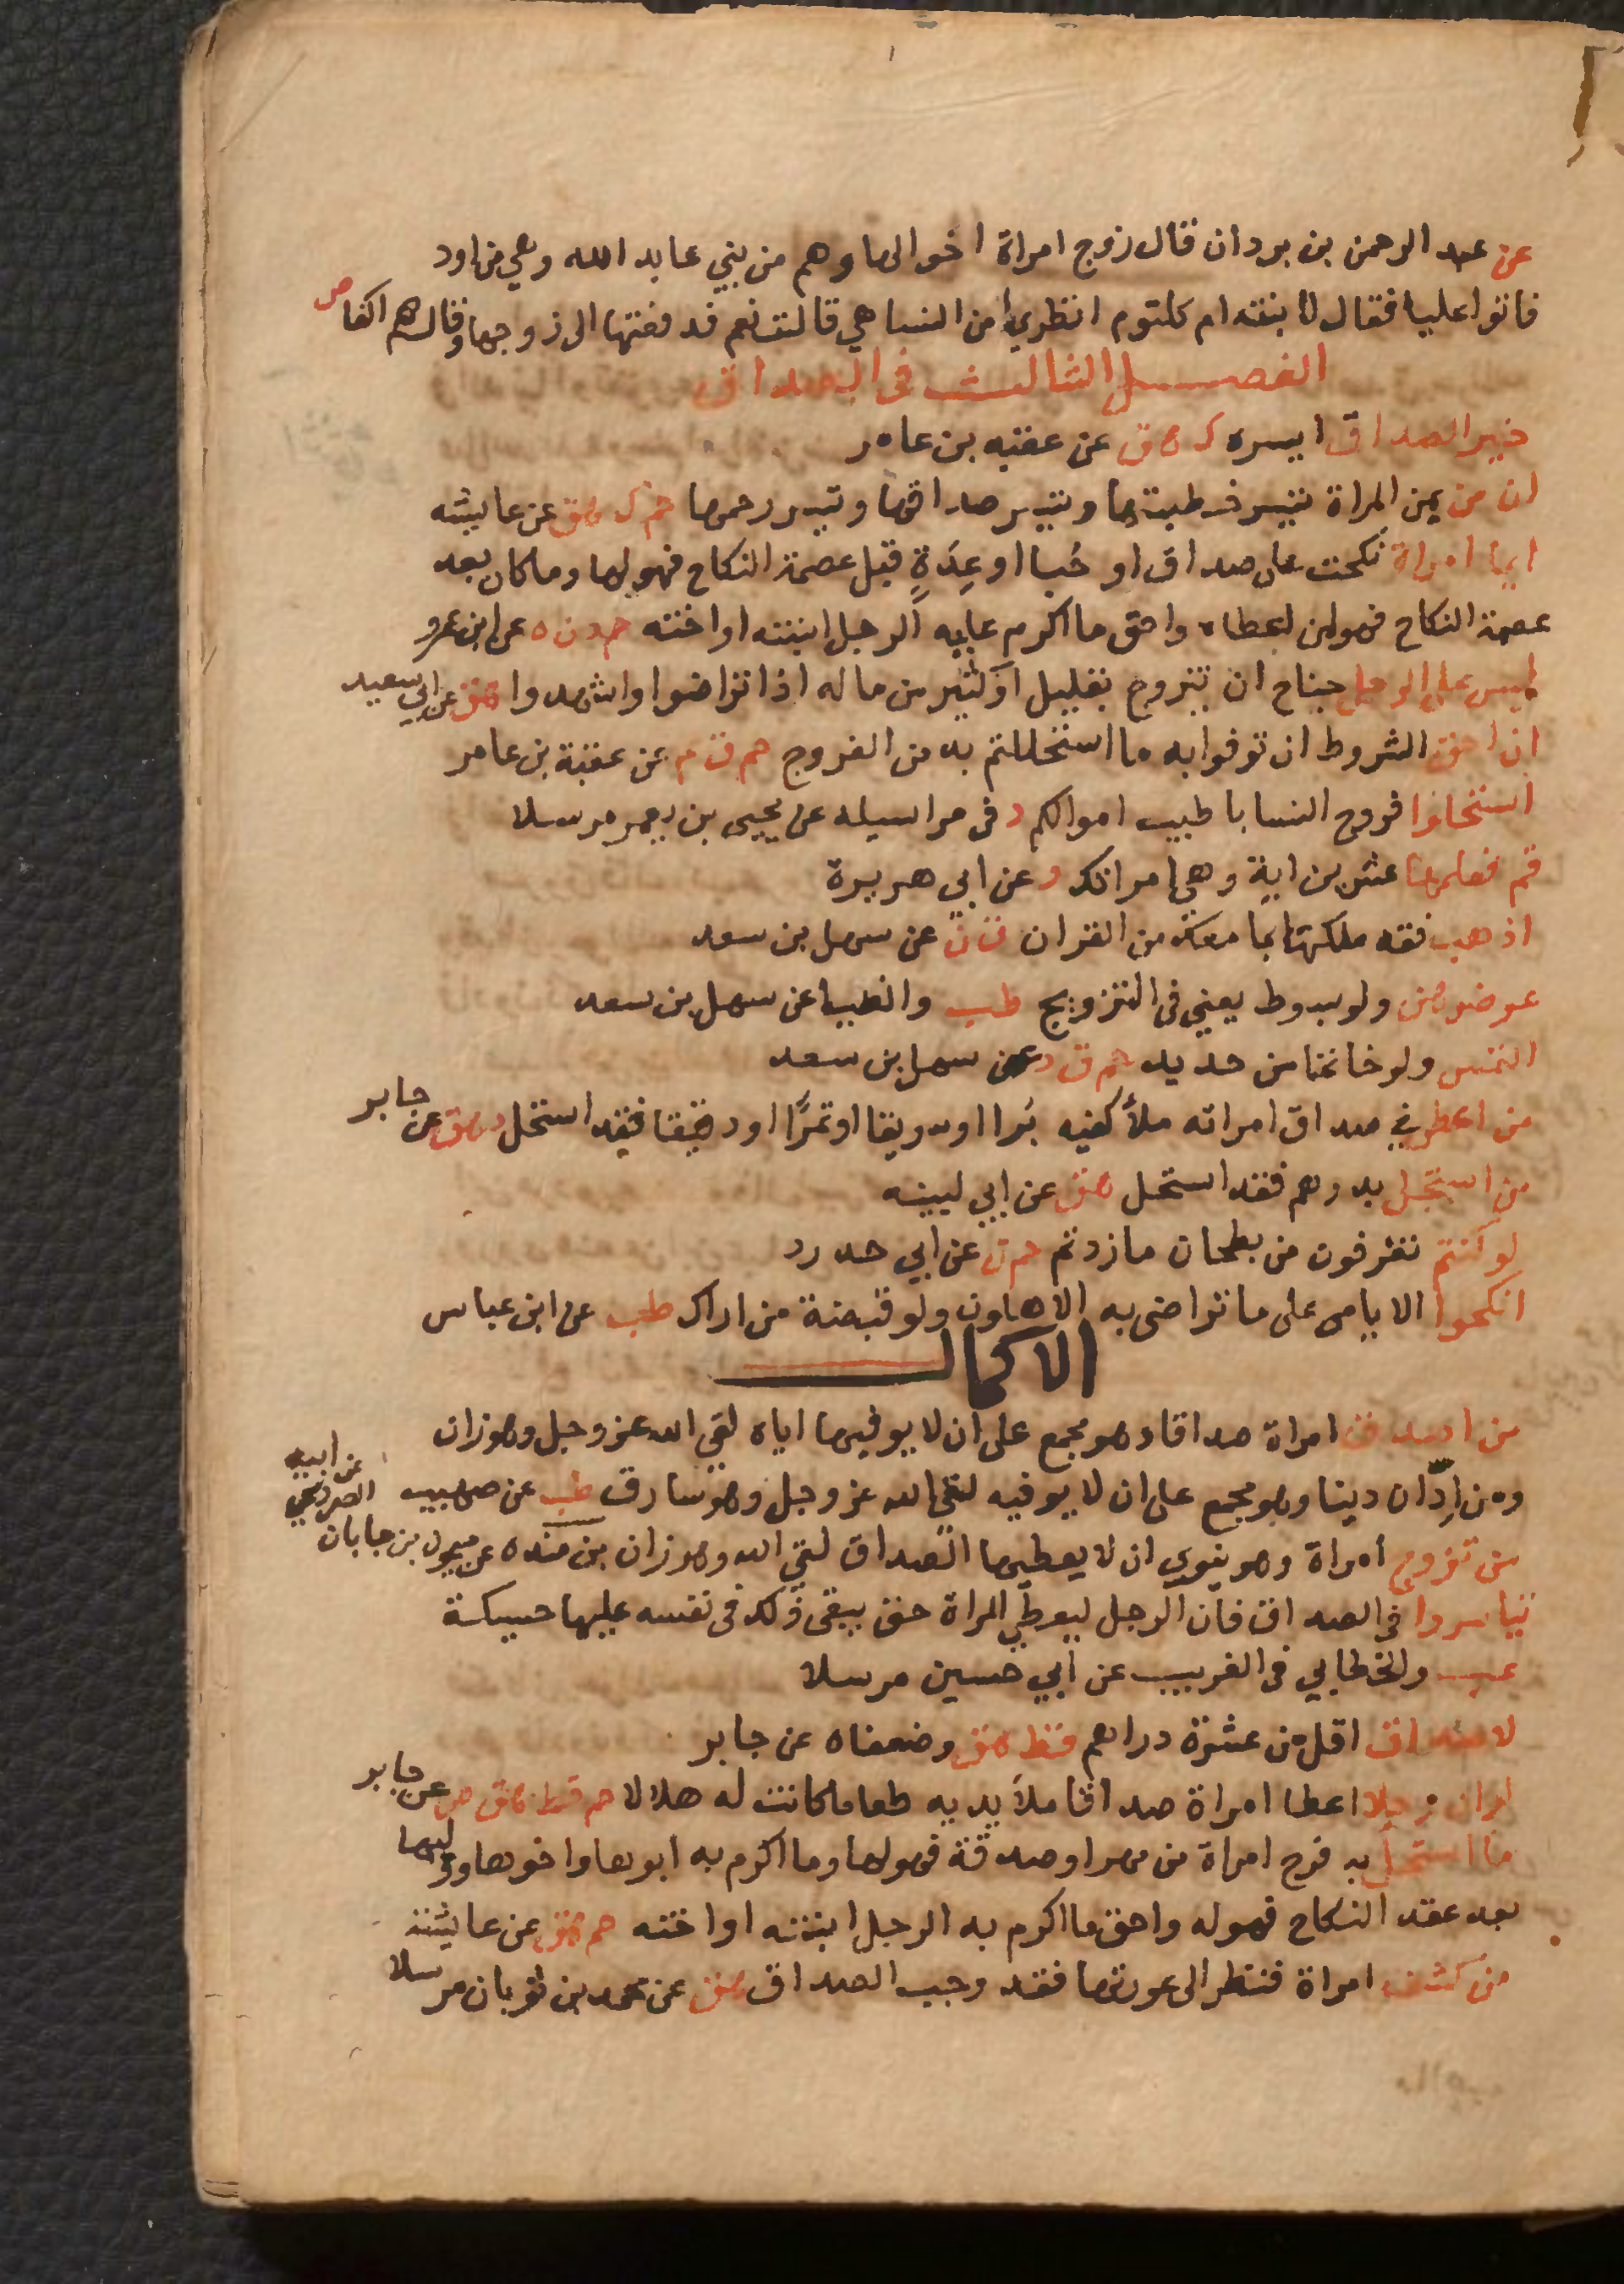 عن عبد الرحمن بن بردان قال زوج امراة اخوالها وهم من بني عابد الله وهي من اود
فاتوا عليا فقال لابنته ام كلثوم انظري امن النسا هي قالت نعم فدفعتها الى زوجها وقال هم اكفا ص
الفصل الثالث فى الصداق
خير الصداق ايسره ك هق عن عقبه بن عامر
ان من يمن المراة تيسير خطبتها وتيسير صداقها وتيسير رحمها حم ك هق عن عايشه
ايما امراة نكحت على صداق او حُبا او عِدَةٍ قبل عصمة النكاح فهو لها وما كان بعد
عصمة النكاح فهو لمن اعطاه واحق ما اكرم عليه الرجل ابنته او اخته حم د ن ه عن ابن عمرو
ليس على الرجل جناح ان يتزوج بقليل او كثير من ماله اذا تراضوا واشهدوا هق عن ابي سعيد
ان احق الشروط ان توفوا به ما استحللتم به من الفروج حم ق م عن عقبة بن عامر
استحلوا فروج النسا باطيب اموالكم د فى مراسيله عن يحيى بن يعمر مرسلا
قم فعلمها عشرين اية وهي امراتك د عن ابي هريرة
اذهب فقد ملكتها بما معك من القران ق ن عن سهل بن سعد
عوضوهن ولو بسوط يعني فى التزويج طب والضيا عن سهل بن سعد
التمس ولو خاتما من حديد حم ق د عن سهل بن سعد
من اعطى في صداق امراته ملأ كفيه بُرا او سويقا او تمرًا او دقيقا فقد استحل د هق عن جابر
من استحل بدرهم فقد استحل هق عن ابي لبيبه
لو كنتم تغرفون من بطحان ما زدتم حم ك عن ابي حدرد
انكحوا الايامى على ما تراضى به الاهلون ولو قبضة من اراك طب عن ابن عباس
الاكمال
من اصدق امراة صداقا وهو مجمع على ان لا يوفيها اياه لقي الله عز وجل وهو زان
ومن ادّان دينا وهو مجمع على ان لا يوفيه لقى الله عز وجل وهو سارق طب عن صهيب
من تزوج امراة وهو ينوي ان لا يعطيها الصداق لقي الله وهو زان بن منده عن ميمون بن جابان الصردي عن ابيه
تياسروا فى الصداق فان الرجل ليعطي المراة حتى يبقى ذلك فى نفسه عليها حسيكة
عب والخطابي فى الغريب عن ابي حسين مرسلا
لا صداق اقل من عشرة دراهم قط هق وضعفاه عن جابر
لو ان رجلا اعطا امراة صداقا ملأ يديه طعاما كانت له حلالا حم قط هق ص عن جابر
ما استحل به فرج امراة من مهر او صدقة فهو لها وما اكرم به ابوها واخوها ووليها
بعد عقد النكاح فهو له واحق ما اكرم به الرجل ابنته او اخته حم هق عن عايشة
من كشف امراة فنظر الى عورتها فقد وجب الصداق هق عن محمد بن ثوبان مرسلا